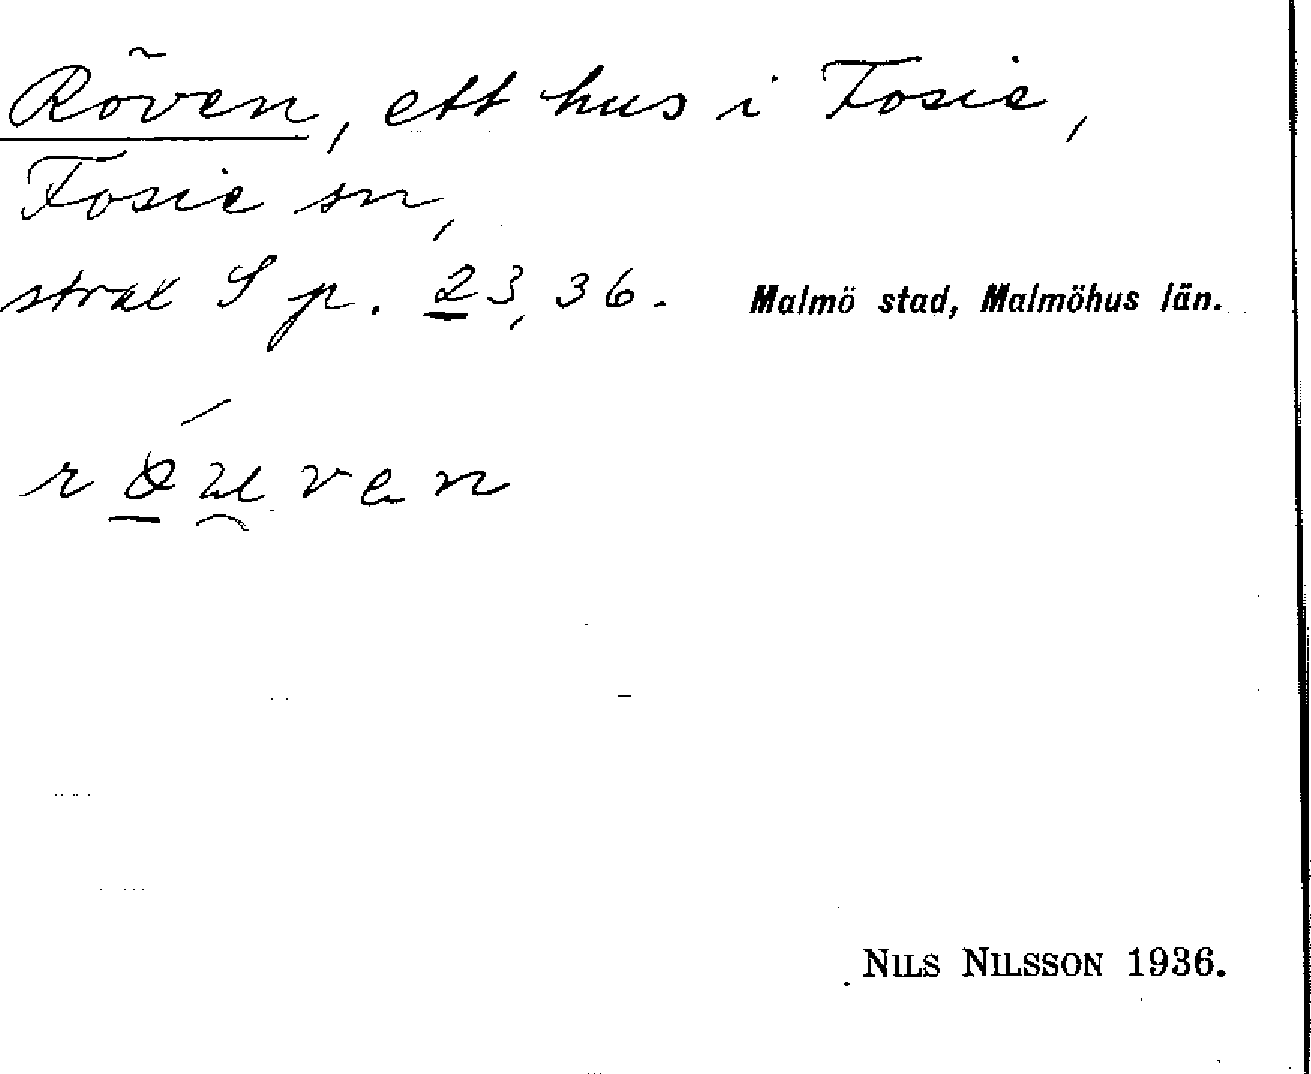 Röven, ett hus i Fosie,
Fosie sn,
strax S p. 23,36. Malmö stad, Malmöhus län.
röuven
NILS NILSSON 1936.